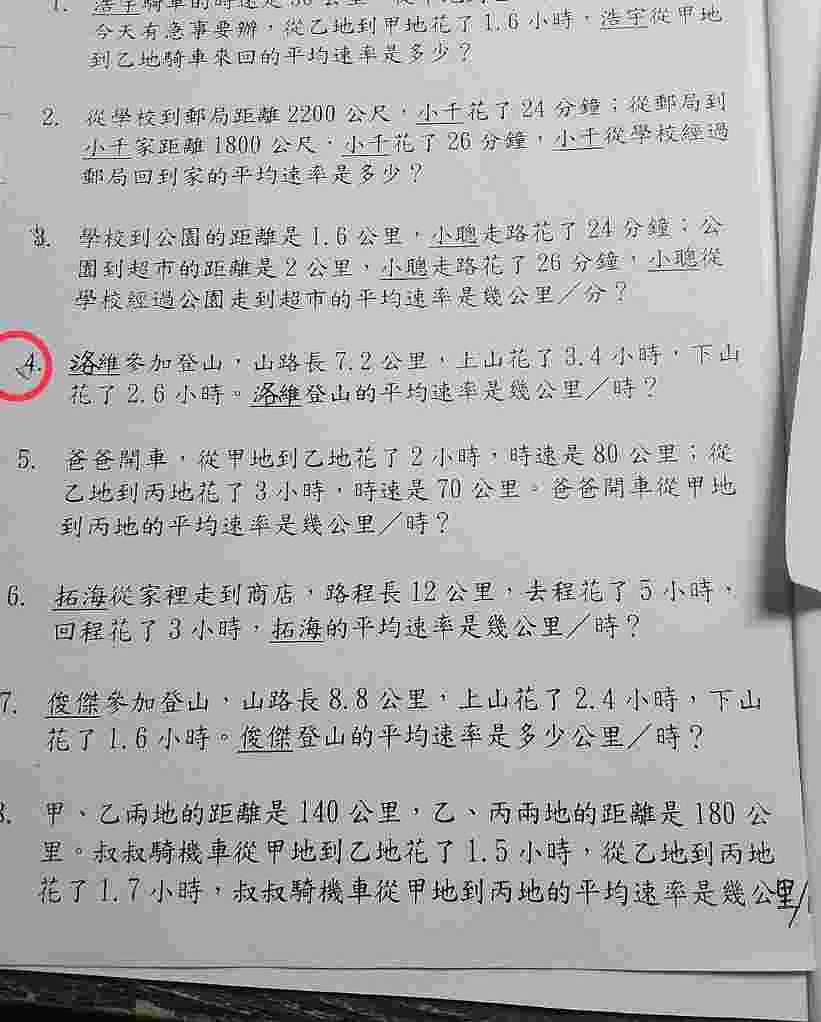 今天有急事要辦，從乙地到甲地花了 1.6 小時，浩宇從甲地
到乙地騎車來回的平均速率是多少？
2. 從學校到郵局距離 2200 公尺，小千花了 24 分鐘；從郵局到
小千家距離 1800 公尺，小千花了 26 分鐘，小千從學校經過
郵局回到家的平均速率是多少？
3. 學校到公園的距離是 1.6 公里，小聰走路花了 24 分鐘；公
園到超市的距離是 2 公里，小聰走路花了 26 分鐘，小聰從
學校經過公園走到超市的平均速率是幾公里／分？
4. 洛維參加登山，山路長 7.2 公里，上山花了 3.4 小時，下山
花了 2.6 小時。洛維登山的平均速率是幾公里／時？
5. 爸爸開車，從甲地到乙地花了 2 小時，時速是 80 公里；從
乙地到丙地花了 3 小時，時速是 70 公里。爸爸開車從甲地
到丙地的平均速率是幾公里／時？
6. 拓海從家裡走到商店，路程長 12 公里，去程花了 5 小時，
回程花了 3 小時，拓海的平均速率是幾公里／時？
7. 俊傑參加登山，山路長 8.8 公里，上山花了 2.4 小時，下山
花了 1.6 小時。俊傑登山的平均速率是多少公里／時？
8. 甲、乙兩地的距離是 140 公里，乙、丙兩地的距離是 180 公
里。叔叔騎機車從甲地到乙地花了 1.5 小時，從乙地到丙地
花了 1.7 小時，叔叔騎機車從甲地到丙地的平均速率是幾公里/